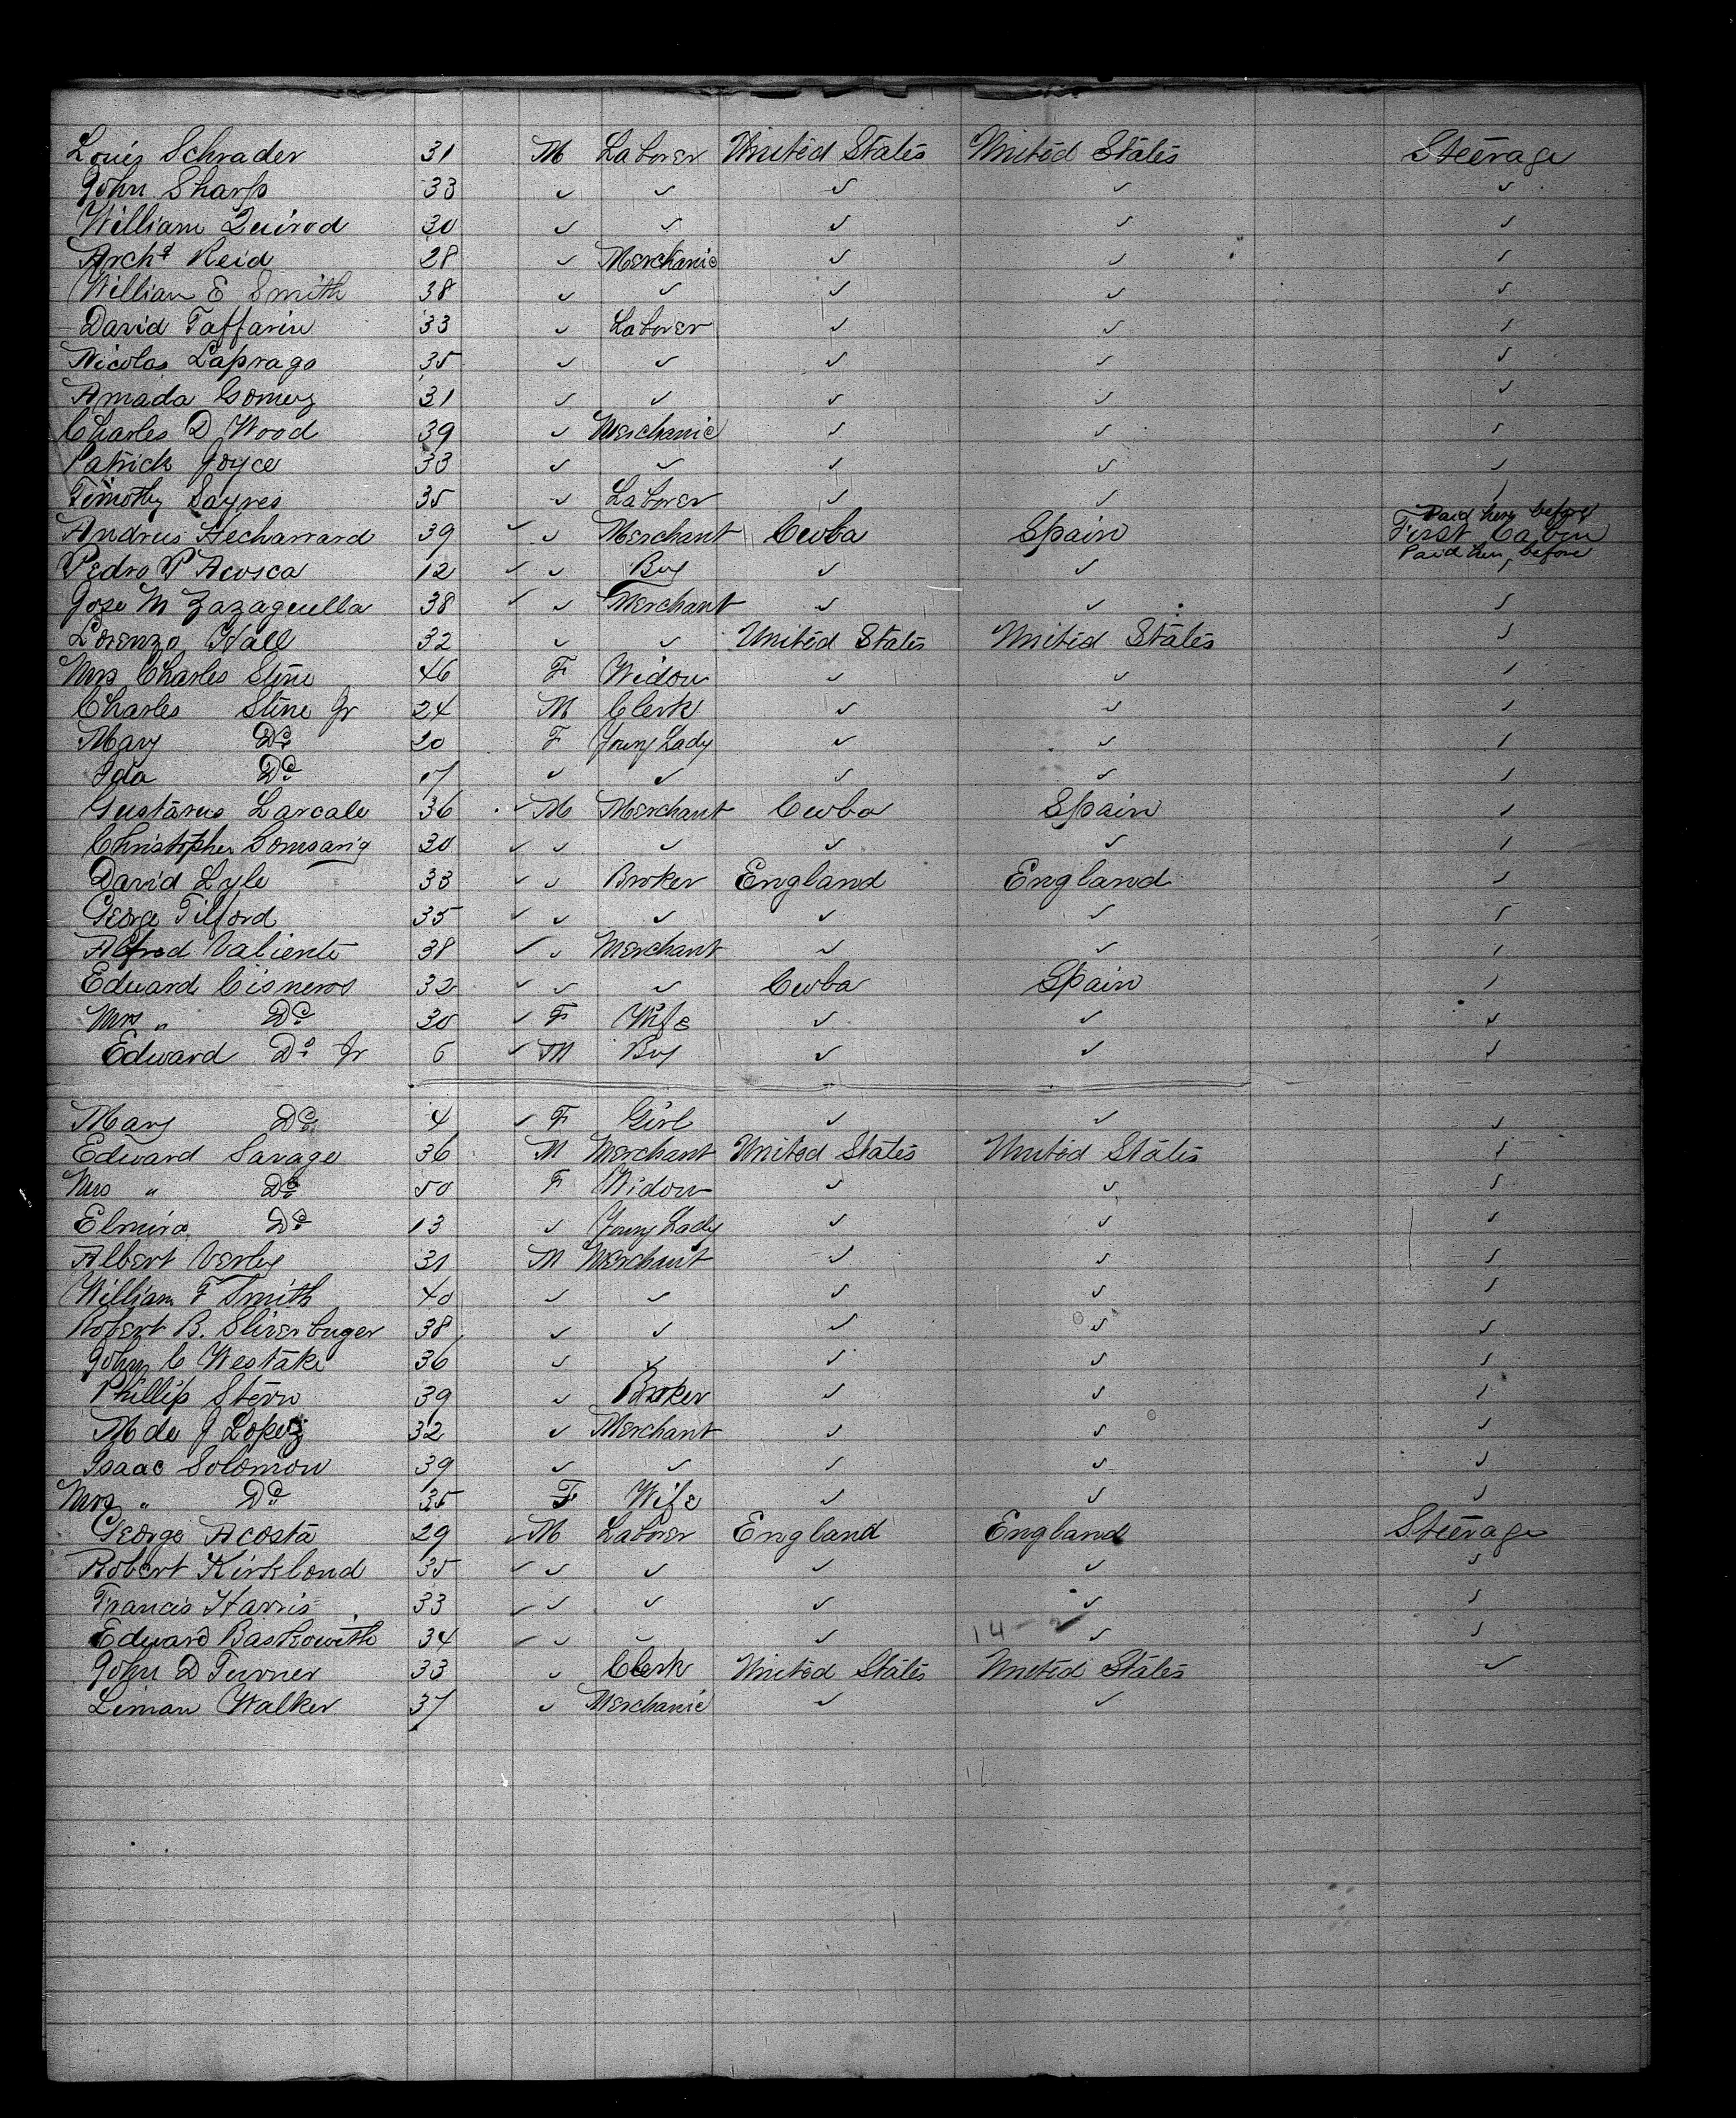 Louis Schrader 31 M Laborer United States United States Steerage
John Sharp 33 ✓ ✓ ✓ ✓ ✓
William Quirod 30 ✓ ✓ ✓ ✓ ✓
Archd Reid 28 ✓ Merchanic ✓ ✓ ✓
William E Smith 38 ✓ ✓ ✓ ✓ ✓
David Taffarin 33 ✓ Laborer ✓ ✓ ✓
Nicolas Laprago 35 ✓ ✓ ✓ ✓ ✓
Amada Gomez 31 ✓ ✓ ✓ ✓ ✓
Charles D Wood 39 ✓ Merchanic ✓ ✓ ✓
Patrick Joyce 33 ✓ ✓ ✓ ✓ ✓
Timothy Sayres 35 ✓ Laborer ✓ ✓ ✓
Paid here before
Andrus Hecharrard 39 ✓ ✓ Merchant Cuba Spain First Cabin
Paid here before
Pedro P Acosca 12 ✓ ✓ Boy ✓ ✓ ✓
Jose M Zazaguella 38 ✓ ✓ Merchant ✓ ✓ ✓
Lorenzo Hall 32 ✓ ✓ United States United States ✓
Mrs Charles Stine 46 F Widow ✓ ✓ ✓
Charles Stine Jr 24 M Clerk ✓ ✓ ✓
Mary Do 20 F Young Lady ✓ ✓ ✓
Ida Do 17 ✓ ✓ ✓ ✓ ✓
Gustarus Larcale 36 ✓ M Merchant Cuba Spain ✓
Christopher 30 ✓ ✓ ✓ ✓ ✓ ✓
David Lyle 33 ✓ ✓ Broker England England ✓
George Tilford 35 ✓ ✓ ✓ ✓ ✓ ✓
Alfred Valiente 38 ✓ ✓ Merchant ✓ ✓ ✓
Edward Cisneros 32 ✓ ✓ ✓ Cuba Spain ✓
Mrs " Do 30 ✓ F Wife ✓ ✓ ✓
Edward Do Jr 6 ✓ M Boy ✓ ✓ ✓
Mary Do 4 ✓ F Girl ✓ ✓ ✓
Edward Savage 36 M Merchant United States United States ✓
Mrs " Do 50 F Widow ✓ ✓ ✓
Elmira Do 13 ✓ Young Lady ✓ ✓ ✓
Albert Verley 31 M Merchant ✓ ✓ ✓
William F Smith 40 ✓ ✓ ✓ ✓ ✓
Robert B. Sliverbuger 38 ✓ ✓ ✓ ✓ ✓
John C Westake 36 ✓ ✓ ✓ ✓ ✓
Phillip Stern 39 ✓ Broker ✓ ✓ ✓
M de J Lopez 32 ✓ Merchant ✓ ✓ ✓
Isaac Solomon 39 ✓ ✓ ✓ ✓ ✓
Mrs " Do 35 F Wife ✓ ✓ ✓
George Acosta 29 ✓ M Laborer England England Steerage
Robert Kirklond 35 ✓ ✓ ✓ ✓ ✓ ✓
Francis Harris 33 ✓ ✓ ✓ ✓ ✓ ✓
Edward Baskowith 34 ✓ ✓ ✓ ✓ 14 ✓ ✓
John D Turner 33 ✓ Clerk United States United States ✓
Liman Walker 37 ✓ Merchanic ✓ ✓